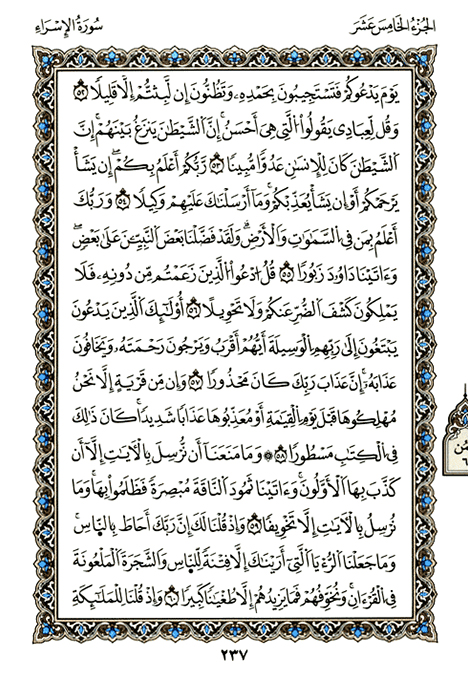 الجزء الخامس عشر
سورة الإسراء
يَوْمَ يَدْعُوكُمْ فَتَسْتَجِيبُونَ بِحَمْدِهِۦ وَتَظُنُّونَ إِن لَّبِثْتُمْ إِلَّا قَلِيلًا ٥٢
وَقُل لِّعِبَادِى يَقُولُوا۟ ٱلَّتِى هِىَ أَحْسَنُ ۚ إِنَّ ٱلشَّيْطَـٰنَ يَنزَغُ بَيْنَهُمْ ۚ إِنَّ
ٱلشَّيْطَـٰنَ كَانَ لِلْإِنسَـٰنِ عَدُوًّا مُّبِينًا ٥٣ رَّبُّكُمْ أَعْلَمُ بِكُمْ ۖ إِن يَشَأْ
يَرْحَمْكُمْ أَوْ إِن يَشَأْ يُعَذِّبْكُمْ ۚ وَمَآ أَرْسَلْنَـٰكَ عَلَيْهِمْ وَكِيلًا ٥٤ وَرَبُّكَ
أَعْلَمُ بِمَن فِى ٱلسَّمَـٰوَٰتِ وَٱلْأَرْضِ ۗ وَلَقَدْ فَضَّلْنَا بَعْضَ ٱلنَّبِيِّـۧنَ عَلَىٰ بَعْضٍ ۖ
وَءَاتَيْنَا دَاوُۥدَ زَبُورًا ٥٥ قُلِ ٱدْعُوا۟ ٱلَّذِينَ زَعَمْتُم مِّن دُونِهِۦ فَلَا
يَمْلِكُونَ كَشْفَ ٱلضُّرِّ عَنكُمْ وَلَا تَحْوِيلًا ٥٦ أُو۟لَـٰٓئِكَ ٱلَّذِينَ يَدْعُونَ
يَبْتَغُونَ إِلَىٰ رَبِّهِمُ ٱلْوَسِيلَةَ أَيُّهُمْ أَقْرَبُ وَيَرْجُونَ رَحْمَتَهُۥ وَيَخَافُونَ
عَذَابَهُۥٓ ۚ إِنَّ عَذَابَ رَبِّكَ كَانَ مَحْذُورًا ٥٧ وَإِن مِّن قَرْيَةٍ إِلَّا نَحْنُ
مُهْلِكُوهَا قَبْلَ يَوْمِ ٱلْقِيَـٰمَةِ أَوْ مُعَذِّبُوهَا عَذَابًا شَدِيدًا ۚ كَانَ ذَٰلِكَ
فِى ٱلْكِتَـٰبِ مَسْطُورًا ٥٨ ۞ وَمَا مَنَعَنَآ أَن نُّرْسِلَ بِٱلْـَٔايَـٰتِ إِلَّآ أَن
كَذَّبَ بِهَا ٱلْأَوَّلُونَ ۚ وَءَاتَيْنَا ثَمُودَ ٱلنَّاقَةَ مُبْصِرَةً فَظَلَمُوا۟ بِهَا ۚ وَمَا
نُرْسِلُ بِٱلْـَٔايَـٰتِ إِلَّا تَخْوِيفًا ٥٩ وَإِذْ قُلْنَا لَكَ إِنَّ رَبَّكَ أَحَاطَ بِٱلنَّاسِ ۚ
وَمَا جَعَلْنَا ٱلرُّءْيَا ٱلَّتِىٓ أَرَيْنَـٰكَ إِلَّا فِتْنَةً لِّلنَّاسِ وَٱلشَّجَرَةَ ٱلْمَلْعُونَةَ
فِى ٱلْقُرْءَانِ ۚ وَنُخَوِّفُهُمْ فَمَا يَزِيدُهُمْ إِلَّا طُغْيَـٰنًا كَبِيرًا ٦٠ وَإِذْ قُلْنَا لِلْمَلَـٰٓئِكَةِ
٢٣٧